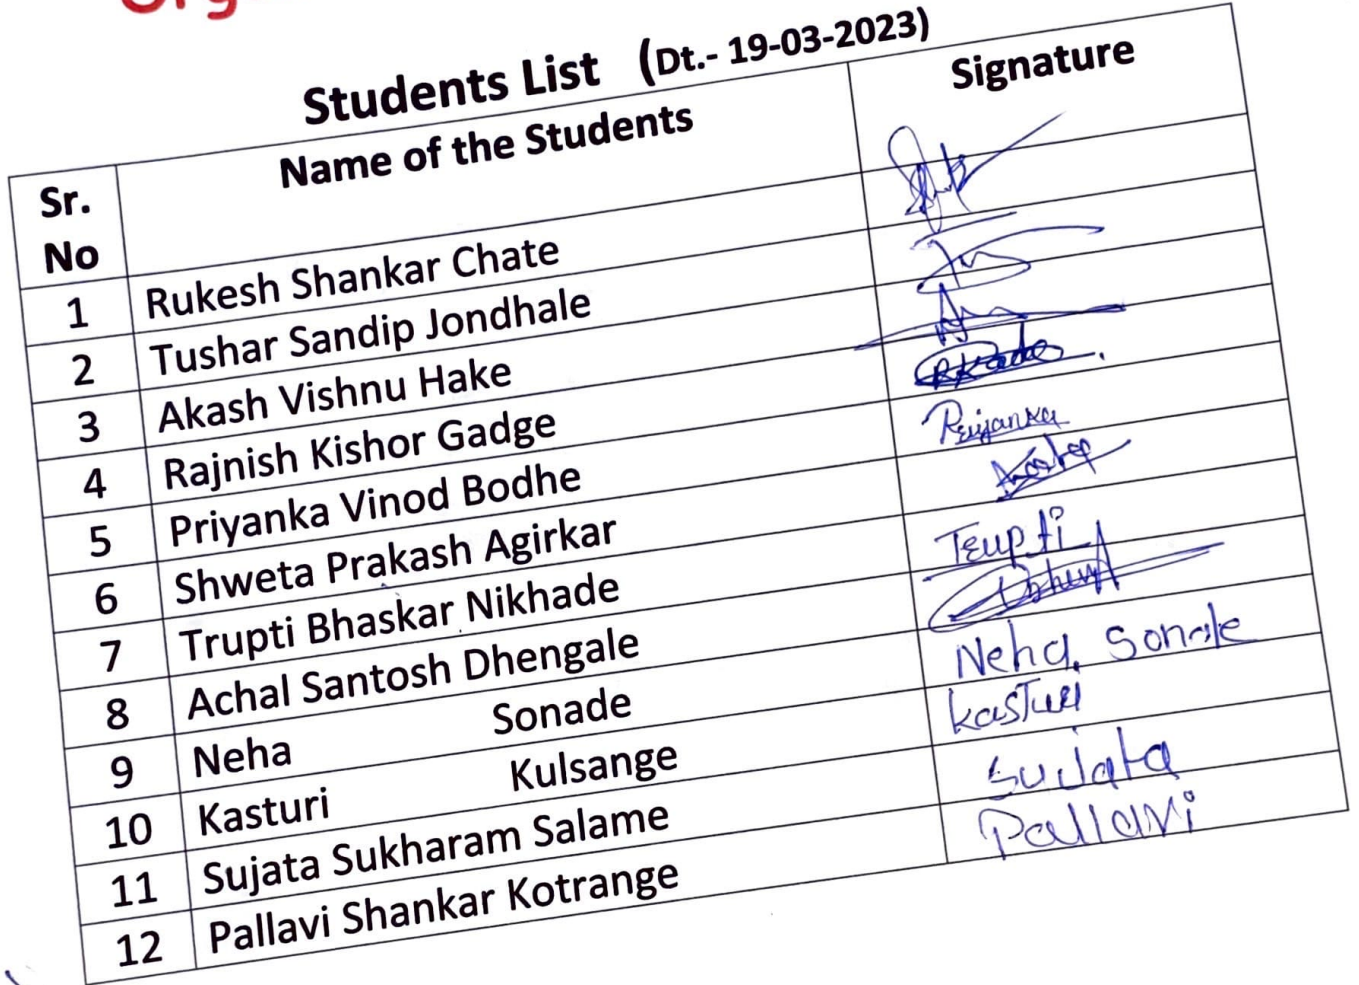 Students List (Dt.- 19-03-2023)
Sr. No Name of the Students Signature
1 Rukesh Shankar Chate
2 Tushar Sandip Jondhale
3 Akash Vishnu Hake
4 Rajnish Kishor Gadge
5 Priyanka Vinod Bodhe Priyanka
6 Shweta Prakash Agirkar
7 Trupti Bhaskar Nikhade Trupti
8 Achal Santosh Dhengale
9 Neha Sonade Neha Sonade
10 Kasturi Kulsange Kasturi
11 Sujata Sukharam Salame Sujata
12 Pallavi Shankar Kotrange Pallavi